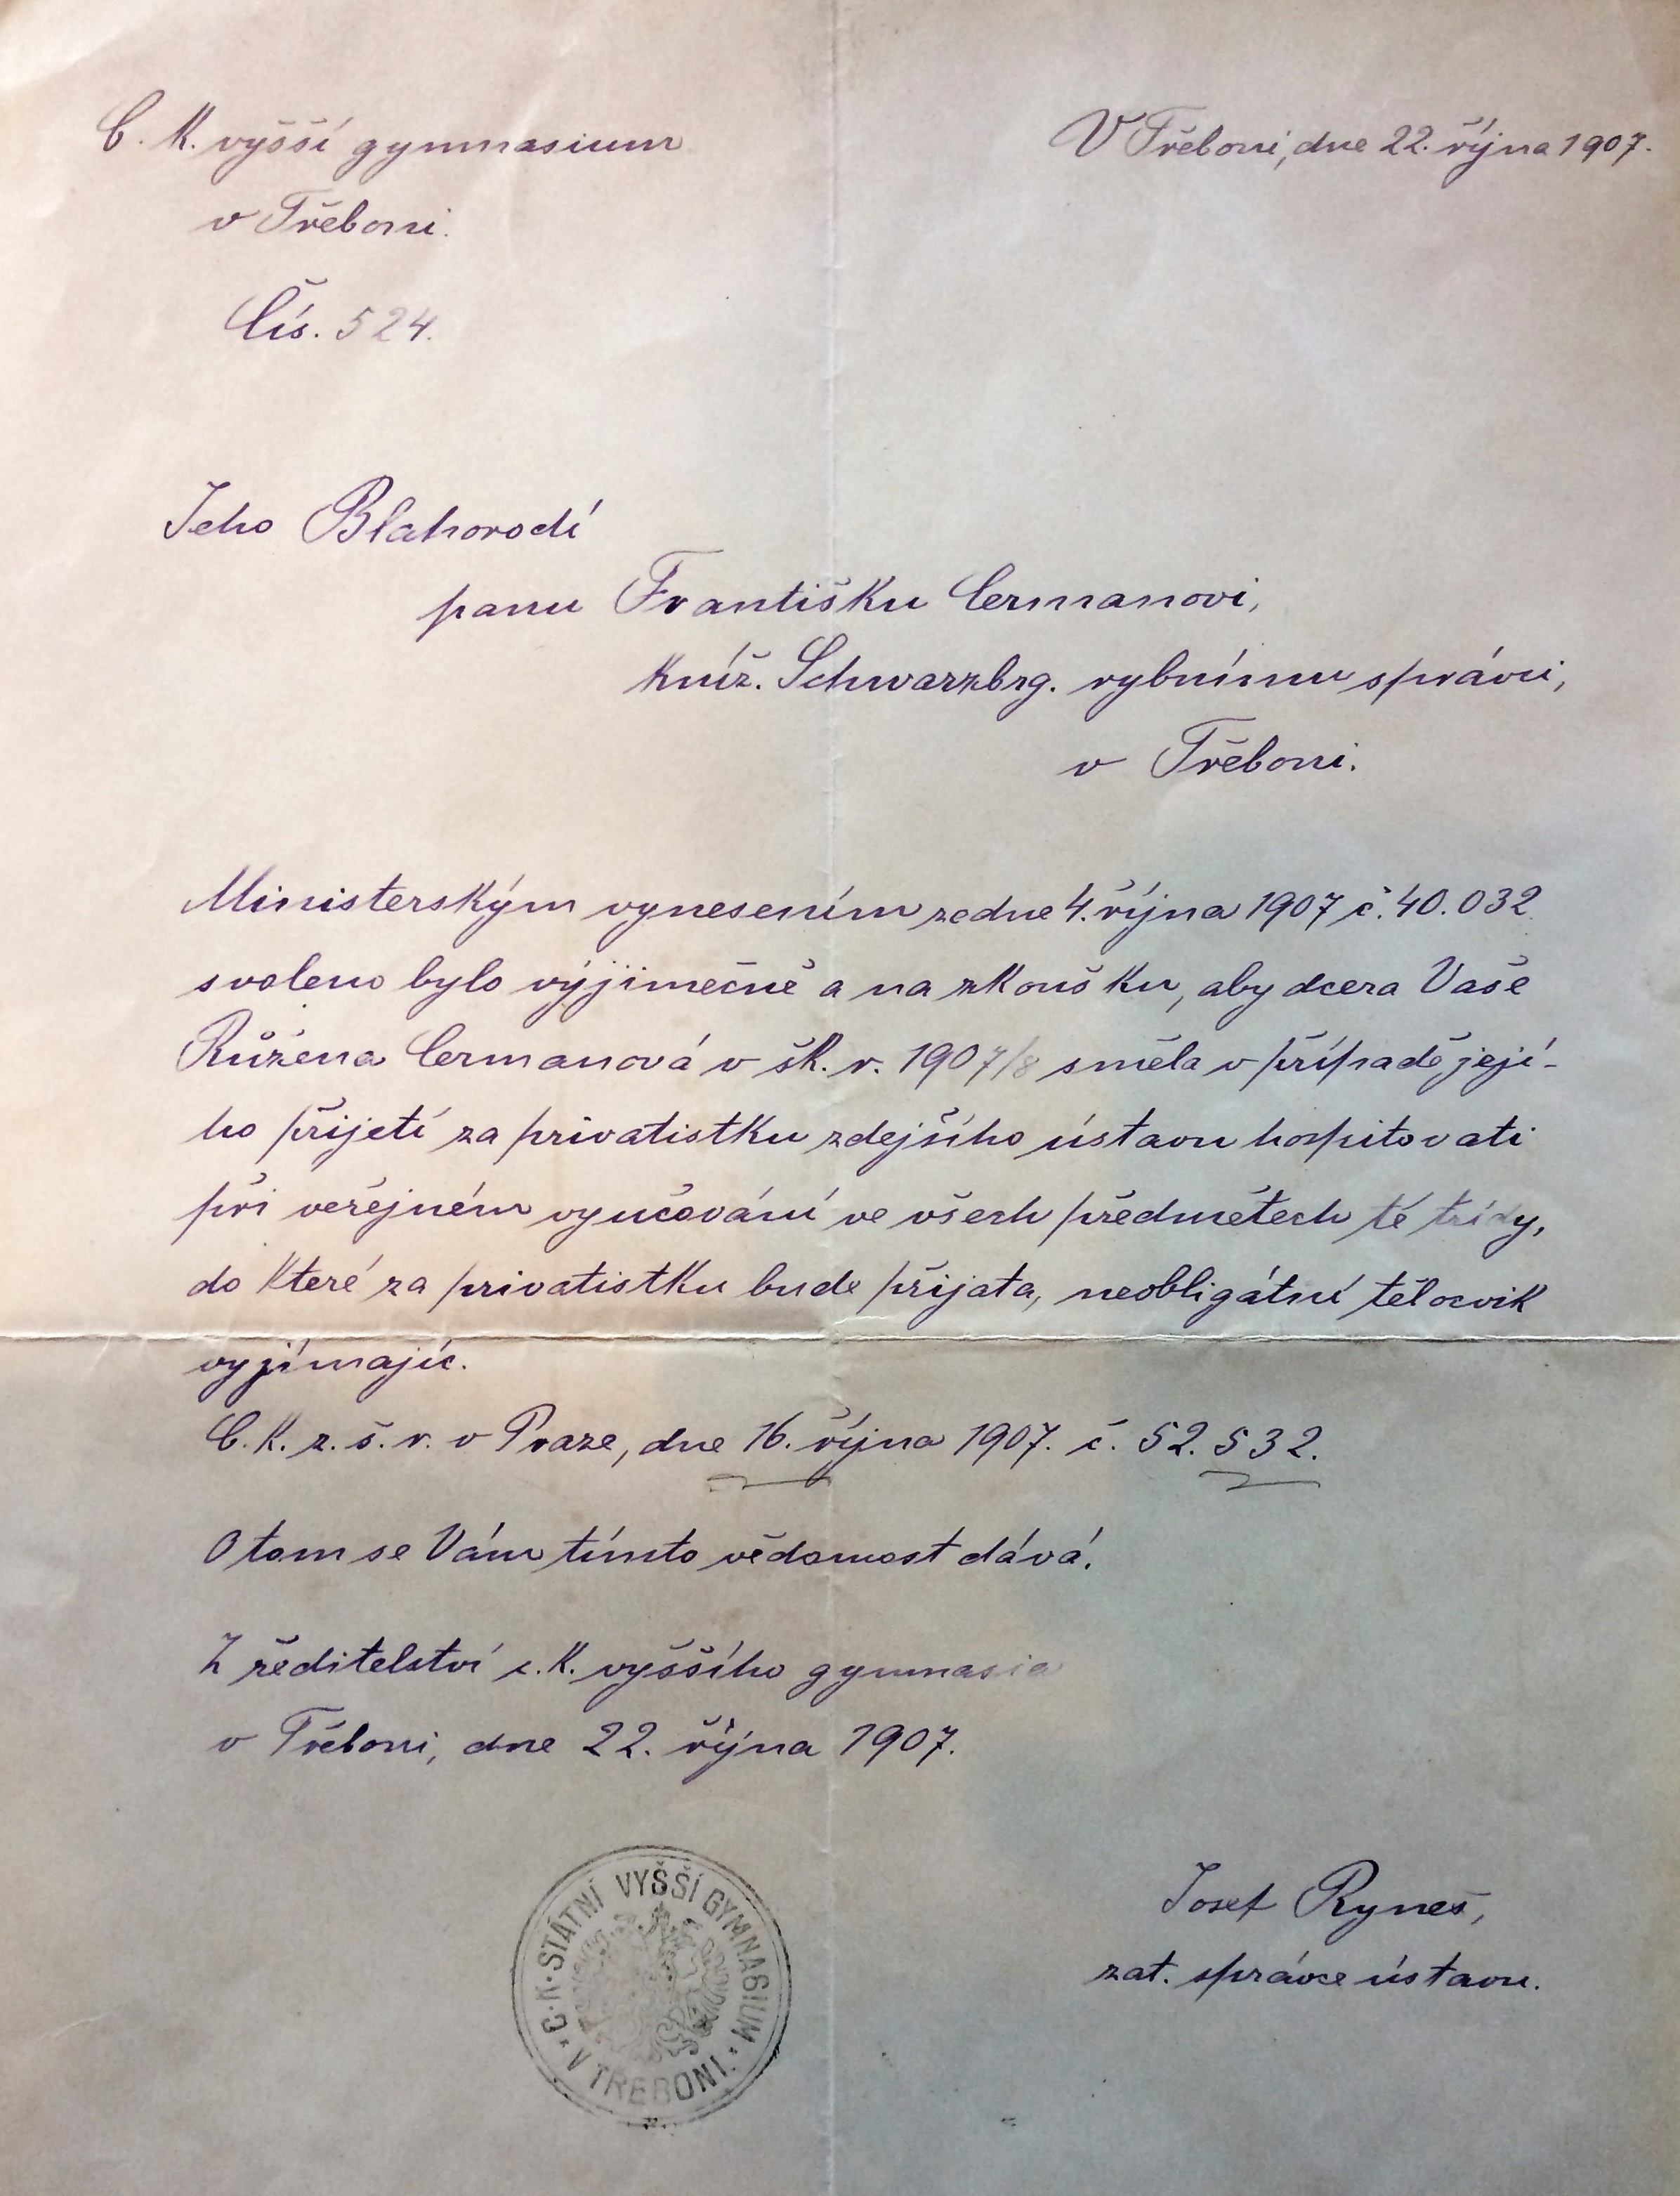 C. K. vyšší gymnasium
v Třeboni.
Čís. 524.
V Třeboni, dne 22. října 1907.
Jeho Blahorodí
panu Františku Cermanovi,
kníž. Schwarzbrg. rybnímu správci,
v Třeboni.
Ministerským vynesením ze dne 4. října 1907 č. 40.032
svoleno bylo výjimečně a na zkoušku, aby dcera Vaše
Růžena Cermanová v šk. r. 1907/8 směla v případě její-
ho přijetí za privatistku zdejšího ústavu hospitovati
při veřejném vyučování ve všech předmětech té třídy,
do které za privatistku bude přijata, neobligátní tělocvik
vyjímajíc.
C. K. z. š. r. v Praze, dne 16. října 1907. č. 52.532.
O tom se Vám tímto vědomost dává.
Z ředitelství c. K. vyššího gymnasia
v Třeboni, dne 22. října 1907.
C. K. STÁTNÍ VYŠŠÍ GYMNASIUM
V TŘEBONI.
Josef Ryneš,
zat. správce ústavu.